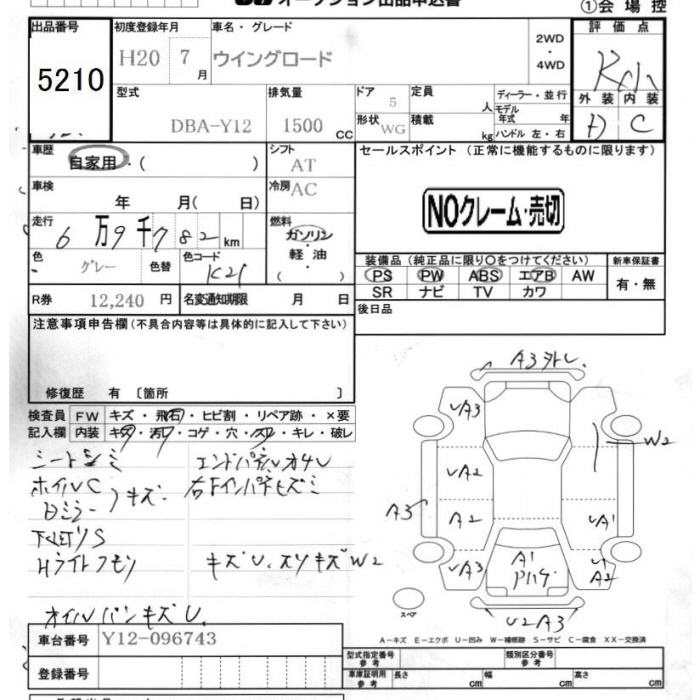 オークション出品申込書
①会場控
出品番号
5210
初度登録年月
H20 7月
車名・グレード
ウイングロード
2WD
・
4WD
評価点
外装 内装
D C
型式
DBA-Y12
排気量
1500 CC
ドア
5
形状
WG
定員
人
積載
kg
ディーラー・並行
モデル
年式 年
ハンドル 左・右
車歴
自家用・( )
シフト
AT
セールスポイント (正常に機能するものに限ります)
車検
年 月( 日)
冷房
AC
NOクレーム・売切
走行
6万9千782km
燃料
ガソリン
・
軽油
・
色
グレー
色替
色コード
K21
装備品 (純正品に限り○をつけてください)
PS PW ABS エアB AW
SR ナビ TV カワ
新車保証書
有・無
R券 12,240 円
名変通知期限 月 日
後日品
注意事項申告欄(不具合内容等は具体的に記入して下さい)
修復歴 有 〔箇所 〕
検査員
記入欄
FW キズ・飛石・ヒビ割・リペア跡・×要
内装 キズ・汚レ・コゲ・穴・スレ・キレ・破レ
シートシミ
エンドパネルオシレ
ホイルC
右Fインパネヒズミ
Dミラー 〉キズ
下廻りS
Hライトクモリ
キズU.スリキズW2
オイルパンキズU.
A3外し
UA3
UA3
W2
UA2
A3
A2
UA1
UA3
A1
A2
スペア
U2A3
A-キズ E-エクボ U-凹み W-補修跡 S-サビ C-腐食 XX-交換済
車台番号 Y12-096743
登録番号
型式指定番号
参考
類別区分番号
参考
車庫証明用
参考
長さ cm
幅 cm
高さ cm